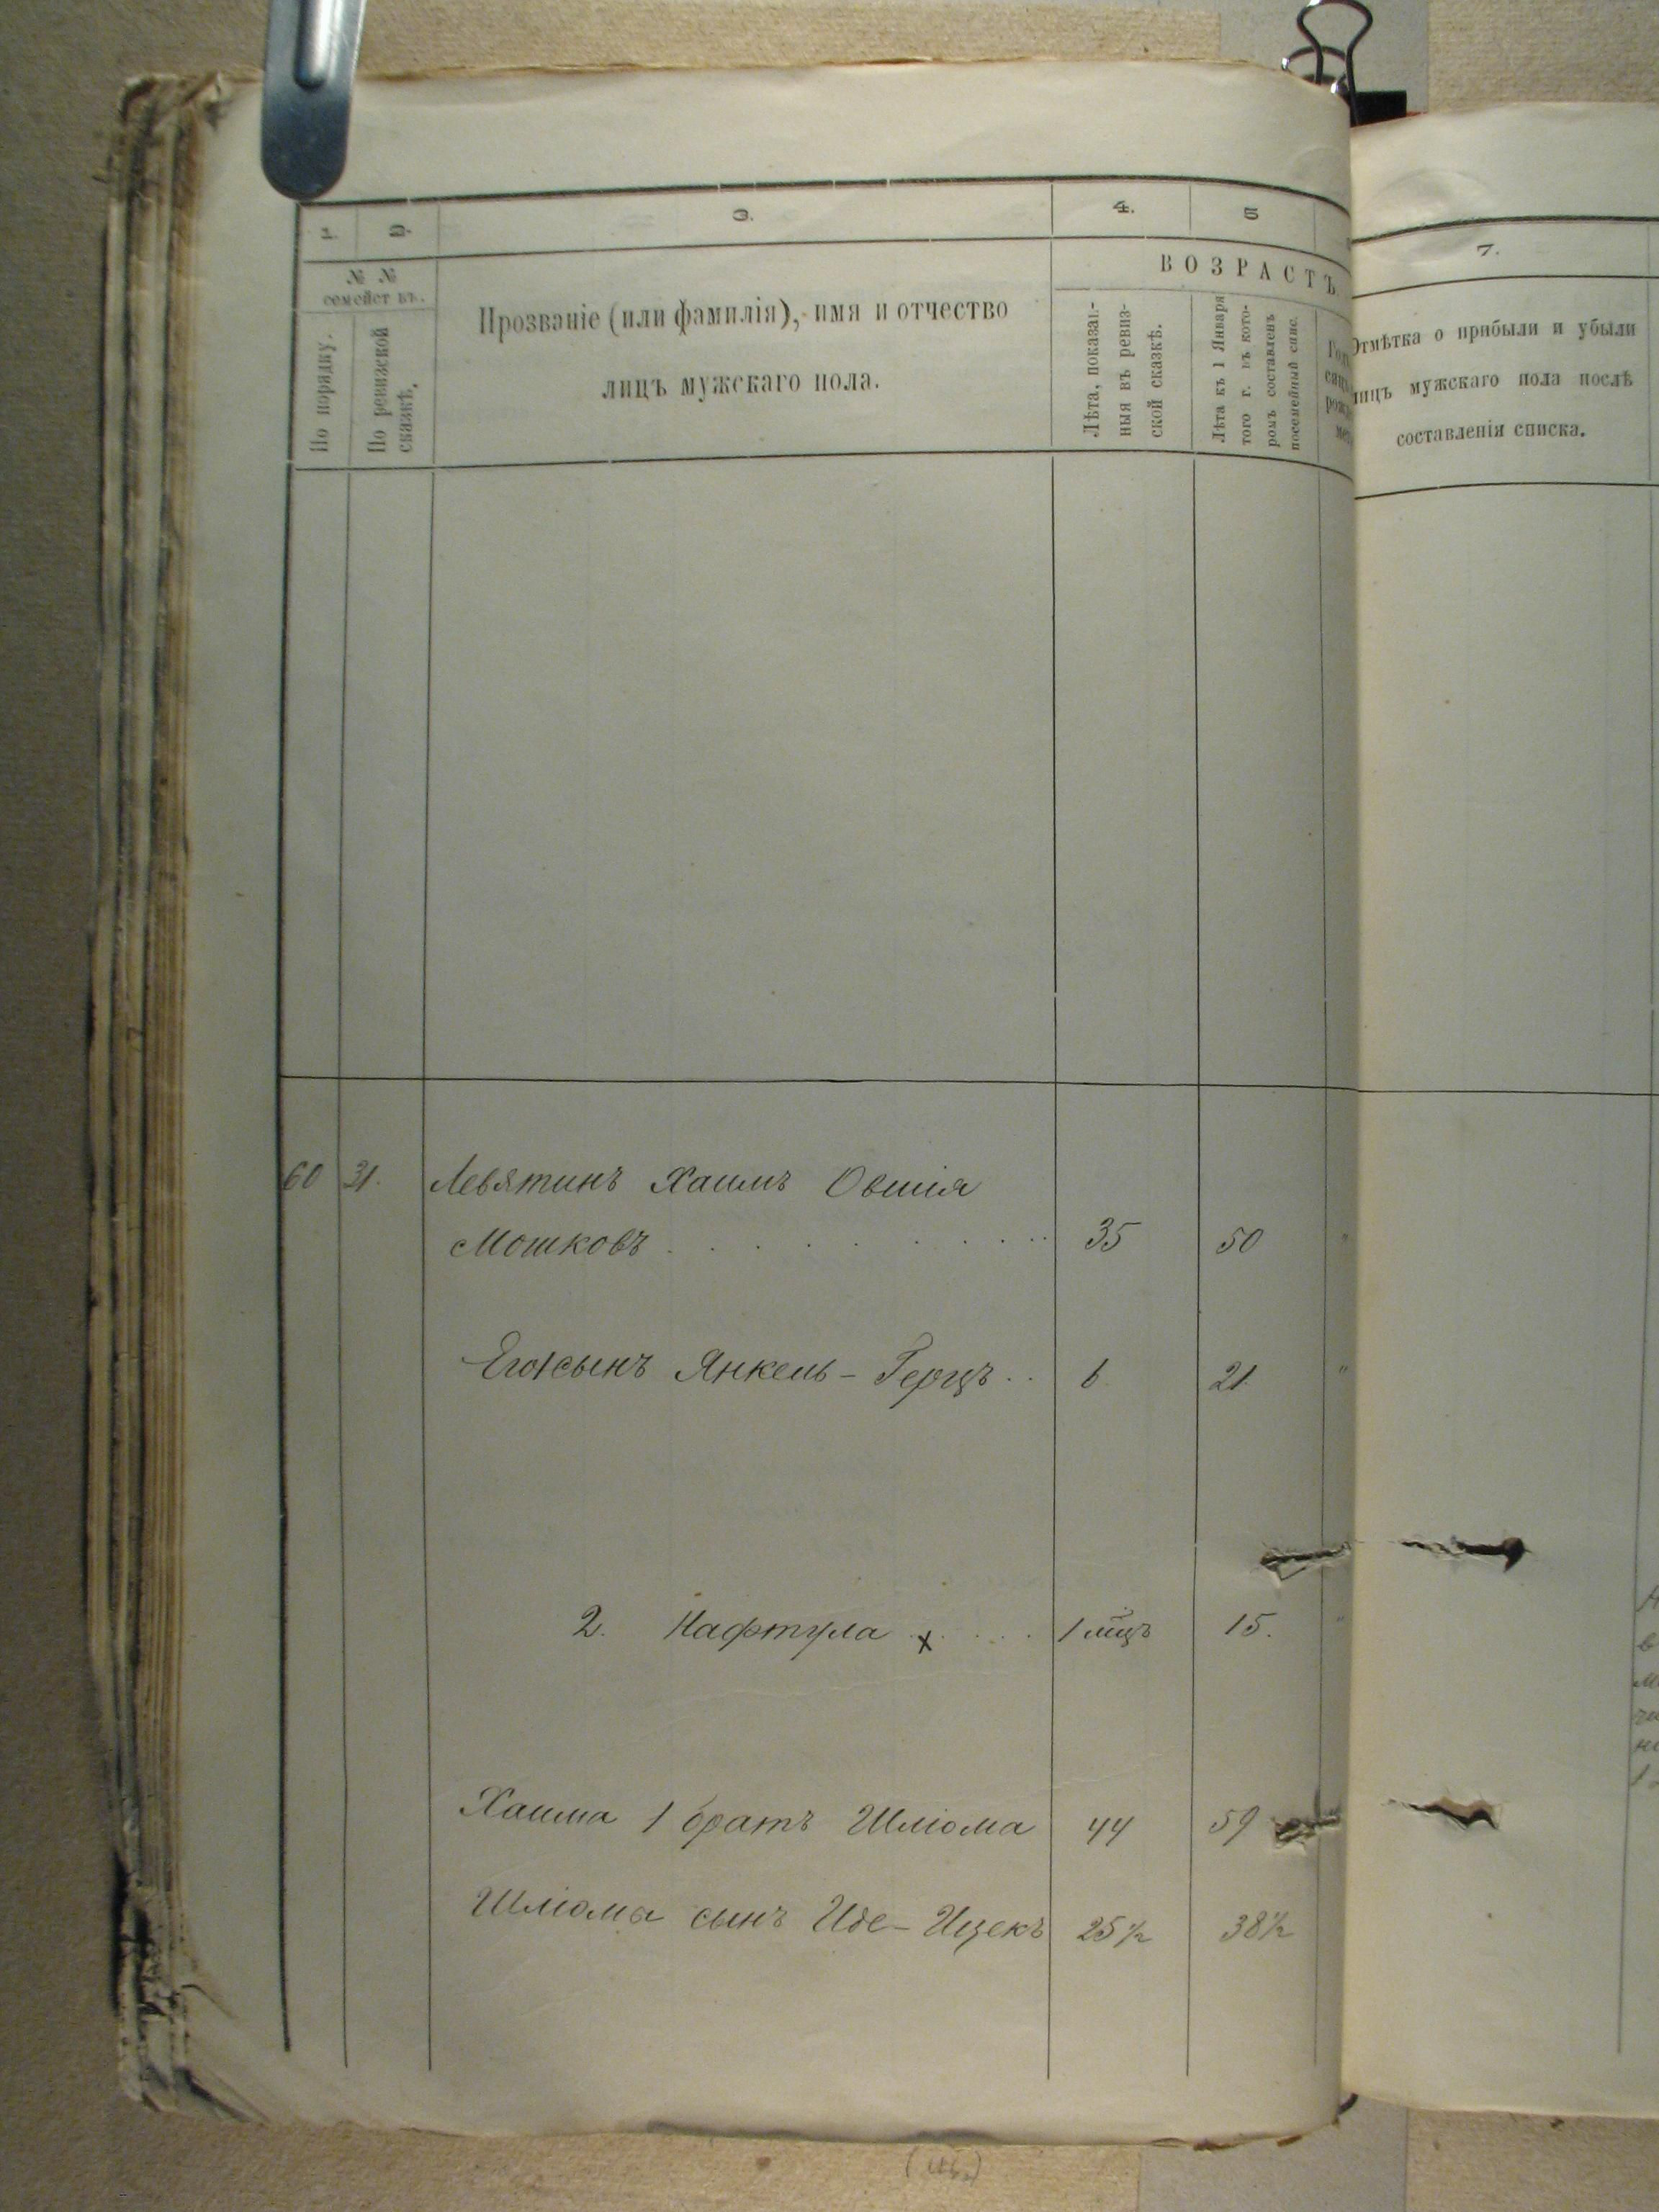 1. 2. 3. 4. 5
№ №
семействъ.
По порядку.
По ревизской
сказкѣ.
Прозваніе (или фамилія), имя и отчество
лицъ мужскаго пола.
ВОЗРАСТЪ.
Лѣта, показан-
ныя въ ревиз-
ской сказкѣ.
Лѣта къ 1 Января
того г. въ кото-
ромъ составленъ
посемейный спис.
7.
Отмѣтка о прибыли и убыли
лицъ мужскаго пола послѣ
составленія списка.
60 31. Левятинъ Хаимъ Овшія
Мошковъ 35 50 "
Его 1 сынъ Янкель-Герцъ 6 21 "
2. Нафтула х 1 мцъ 15. "
Хаима 1 братъ Шліома 44 59
Шліома сынъ Иде-Ицекъ 25½ 38½